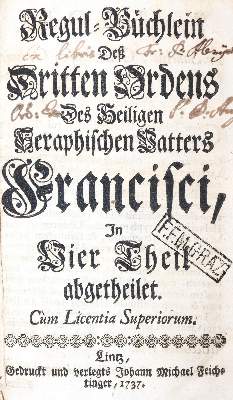 Regul-Büchlein
Deß
Dritten Ordens
Des Heiligen
Seraphischen Vatters
Francisci,
In
Vier Theil
abgetheilet.
Cum Licentia Superiorum.
Lintz,
Gedruckt und verlegts Johann Michael Feich-
tinger, 1737.